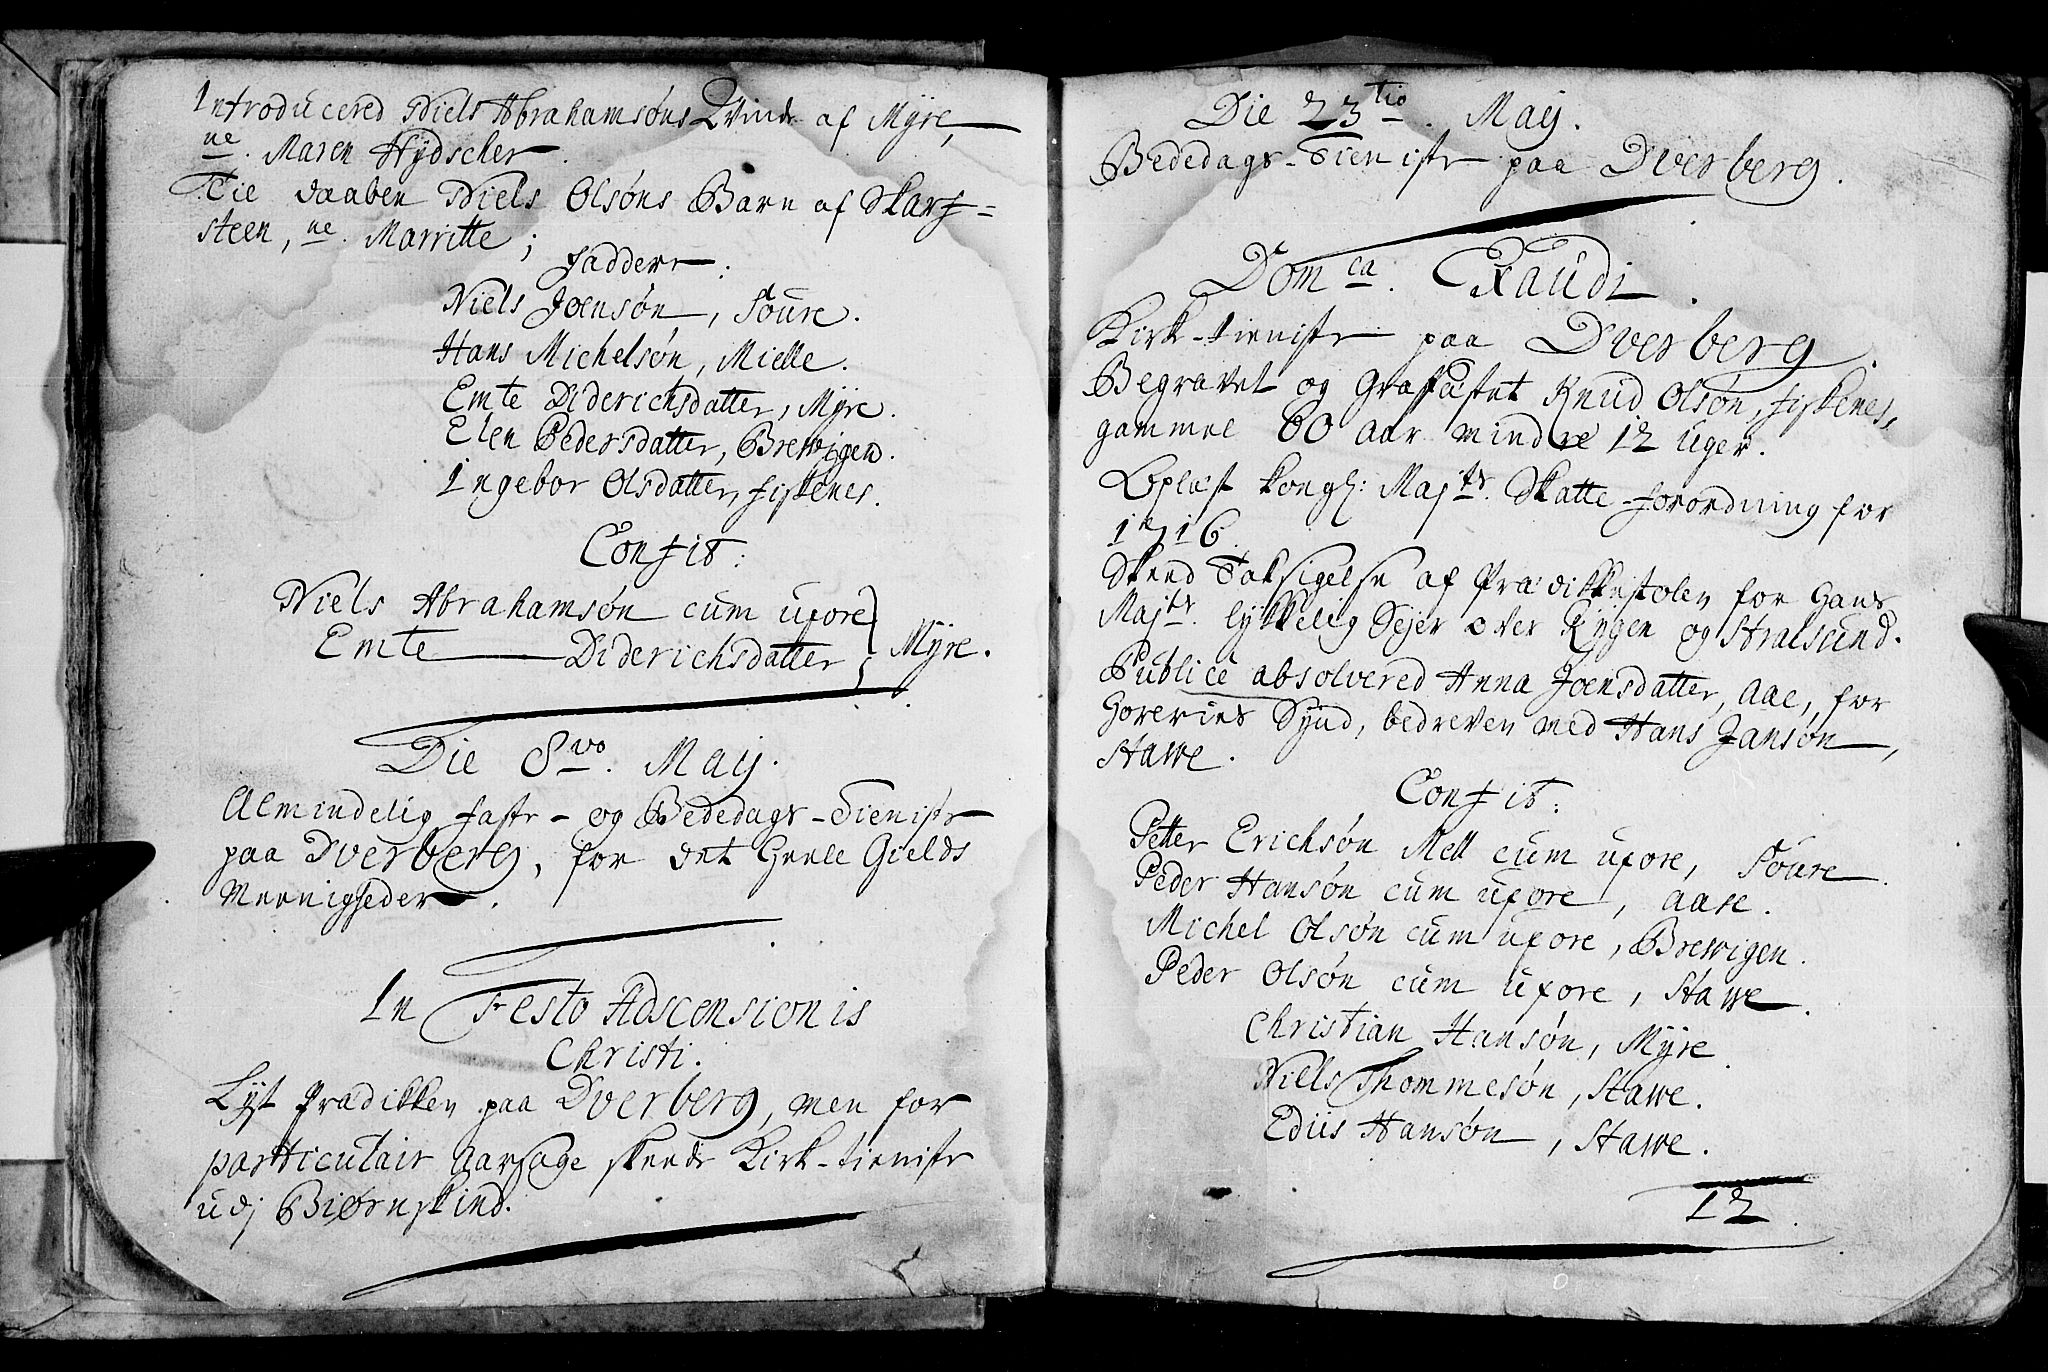 Introducered Niels Abrahamsøns Qvinde af Myre,
ne. Maren Hydscher.
Til daaben Niels Olsøns Barn af Skarf=
steen, ne. Marritte;
faddere:
Niels Joensøn, Toure.
Hans Michelsøn, Mielle.
Emte Diderichsdatter, Myre.
Elen Pedersdatter, Brewigen.
Ingebor Olsdatter, fiskenes.
Confit:
Niels Abrahamsøn cum uxore
Emte Diderichsdatter } Myre.
Die 8vo. Maij.
Almindelig faste- og Bededags-Tieniste
paa Dverberg, for det heele Gields
Meenigheder.
In Festo Adscensionis
Christi.
Lyst Prædikken paa Dverberg, men for
particulair Aarsage skeede Kirk-tieniste
udj Biørnskind.
Die 23tio. Maij.
Bededags-Tieniste paa Dverberg.
Domca. Exaudi.
Kirk-tieniste paa Dverberg.
Begravet og Graffæstet Knud Olsøn, fiskenes,
gammel 60 aar mindre 12 uger.
Oplæst kongl: Majts. Skatte-forordning for
1716.
Skeed Taksigelse af Prædikkestolen for Hans
Majts. lykkelig Sejer over Rygen og Stralsund.
Publice absolvered Anna Joensdatter, Aae, for
Horeries Synd, bedreven med Hans Jansøn,
Stawe.
Confit:
Petter Erichsøn Mell cum uxore, Toure.
Peder Hansøn cum uxore, Aase.
Michel Olsøn cum uxore, Brewigen.
Peder Olsøn cum uxore, Stawe.
Christian Hansøn, Myre
Niels Thommesøn, Stawe.
Ediis Hansøn, Stawe.
12.